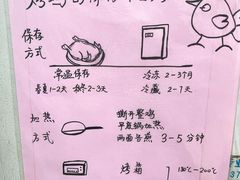 保存
方式
常温保存
冷冻 2-3个月
春夏1-2天 秋冬2-3天
冷藏 2-7天
加热
方式
撕开整鸡
平底锅加热
两面各煎 3-5分钟
烤箱
180℃-200℃